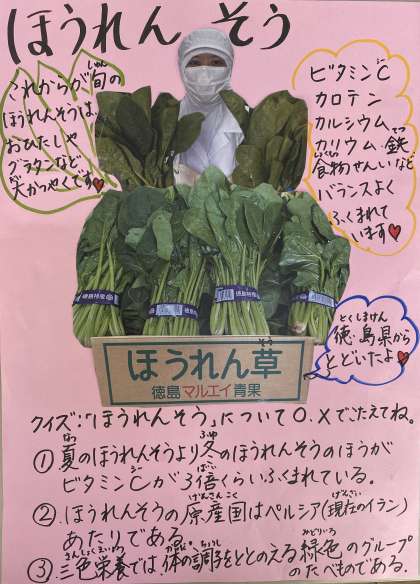 ほうれん そう
これからが旬の
ほうれんそうは、
おひたしや
グラタンなど
大かつやくです
ビタミンC
カロテン
カルシウム
カリウム・鉄
食物せんいなど
バランスよく
ふくまれて
います
徳島県から
とどいたよ
ほうれん草
徳島マルエイ青果
クイズ:「ほうれんそう」について○、×でこたえてね。
①夏のほうれんそうより冬のほうれんそうのほうが
ビタミンCが3倍くらいふくまれている。
②ほうれんそうの原産国はペルシア(現在のイラン)
あたりである。
③三色栄養では、体の調子をととのえる緑色のグループ
のたべものである。